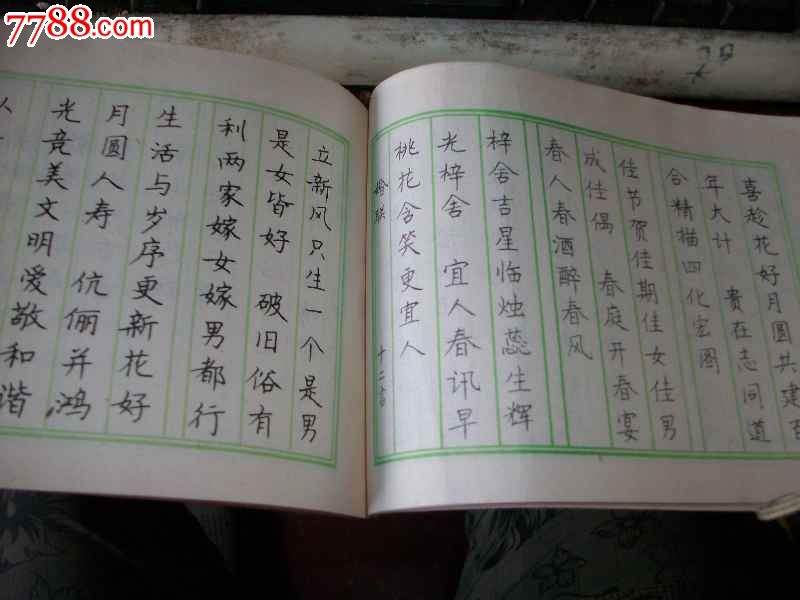 7788.com
喜趁花好月圆共建百
年大计 贵在志同道
合精描四化宏图
佳节贺佳期佳女佳男
成佳偶 春庭开春宴
春人春酒醉春风
梓舍吉星临烛蕊生辉
光梓舍 宜人春讯早
桃花含笑更宜人
婚联 十二言
立新风只生一个是男
是女皆好 破旧俗有
利两家嫁女嫁男都行
生活与岁序更新花好
月圆人寿 伉俪并鸿
光竞美文明爱敬和谐